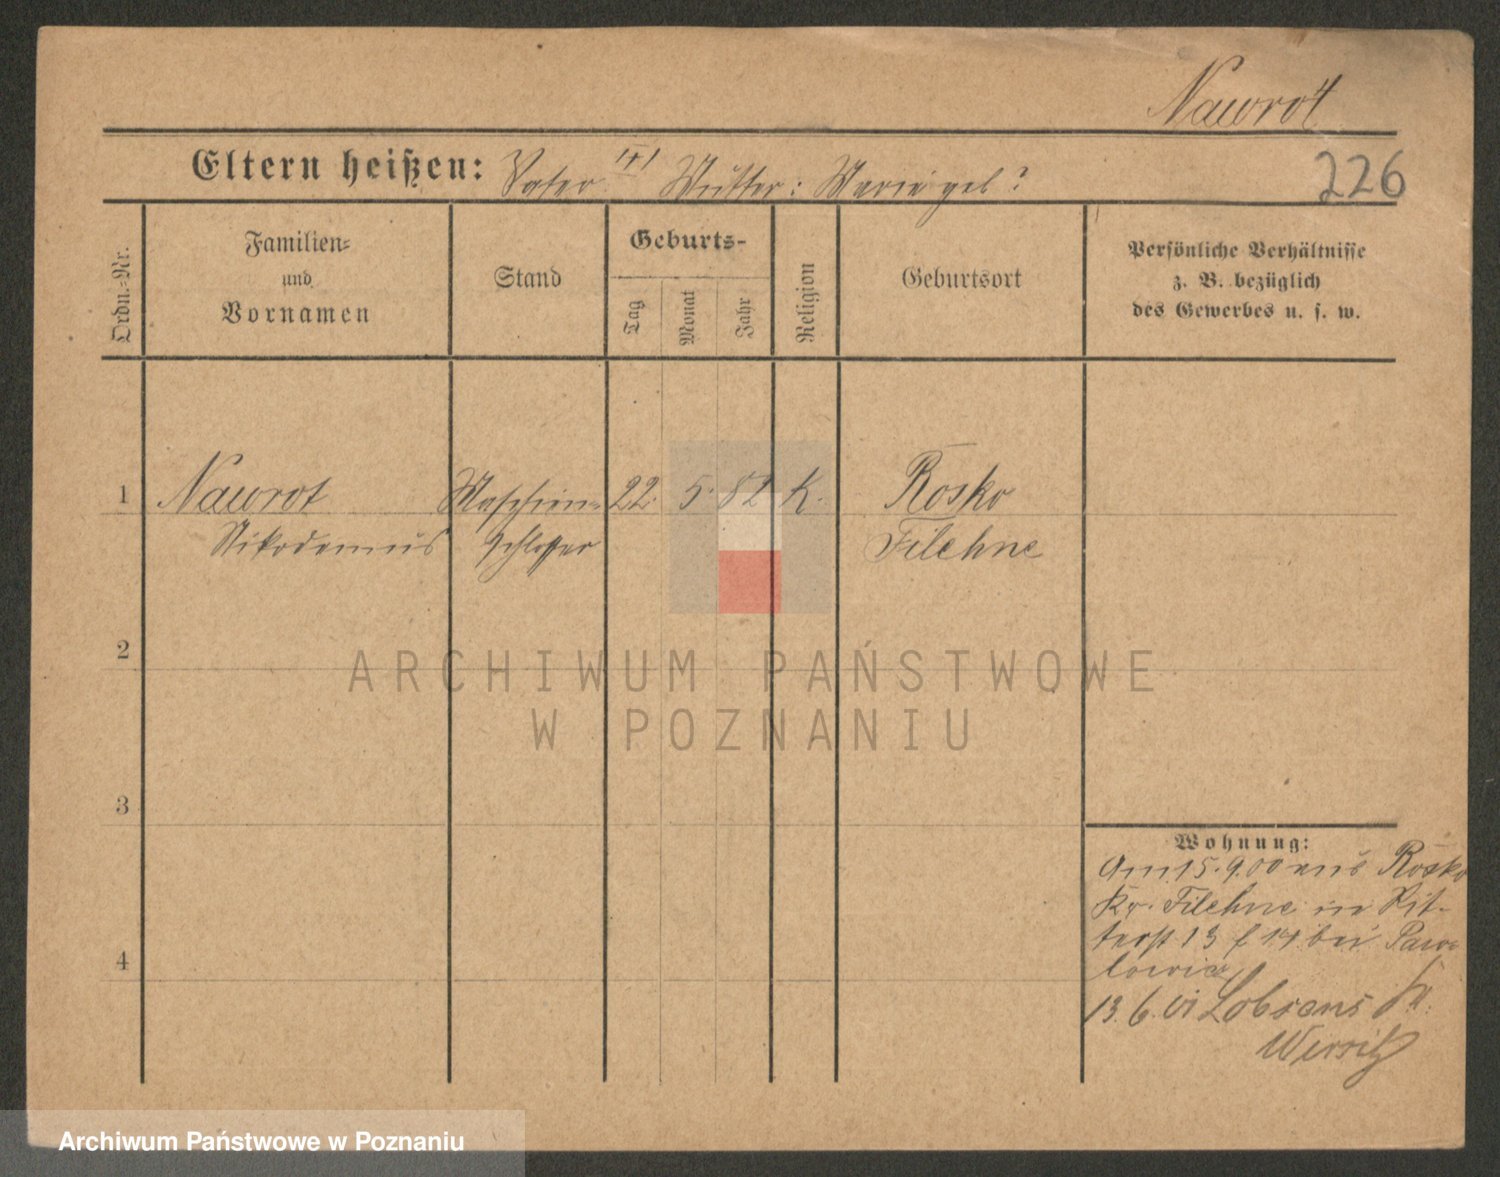 Nawrot
Eltern heißen: Vater Mutter: Marie geb?
226
Ordn.-Nr.
Familien-
und
Vornamen
Stand
Geburts-
Tag
Monat
Jahr
Religion
Geburtsort
Persönliche Verhältnisse
z. B. bezüglich
des Gewerbes u. s. w.
1 Nawrot Maschien- 22. 5. 82 K. Rosko
Nikodemus schlosser Filehne
2
ARCHIWUM PAŃSTWOWE
W POZNANIU
3
Wohnung:
Am 15.9.00 aus Rosko
Kr. Filehne in Rit-
terst 13/14 bei Paw-
lowicz
4
13.6.01 Lobsens Kr.
Wirsitz
Archiwum Państwowe w Poznaniu